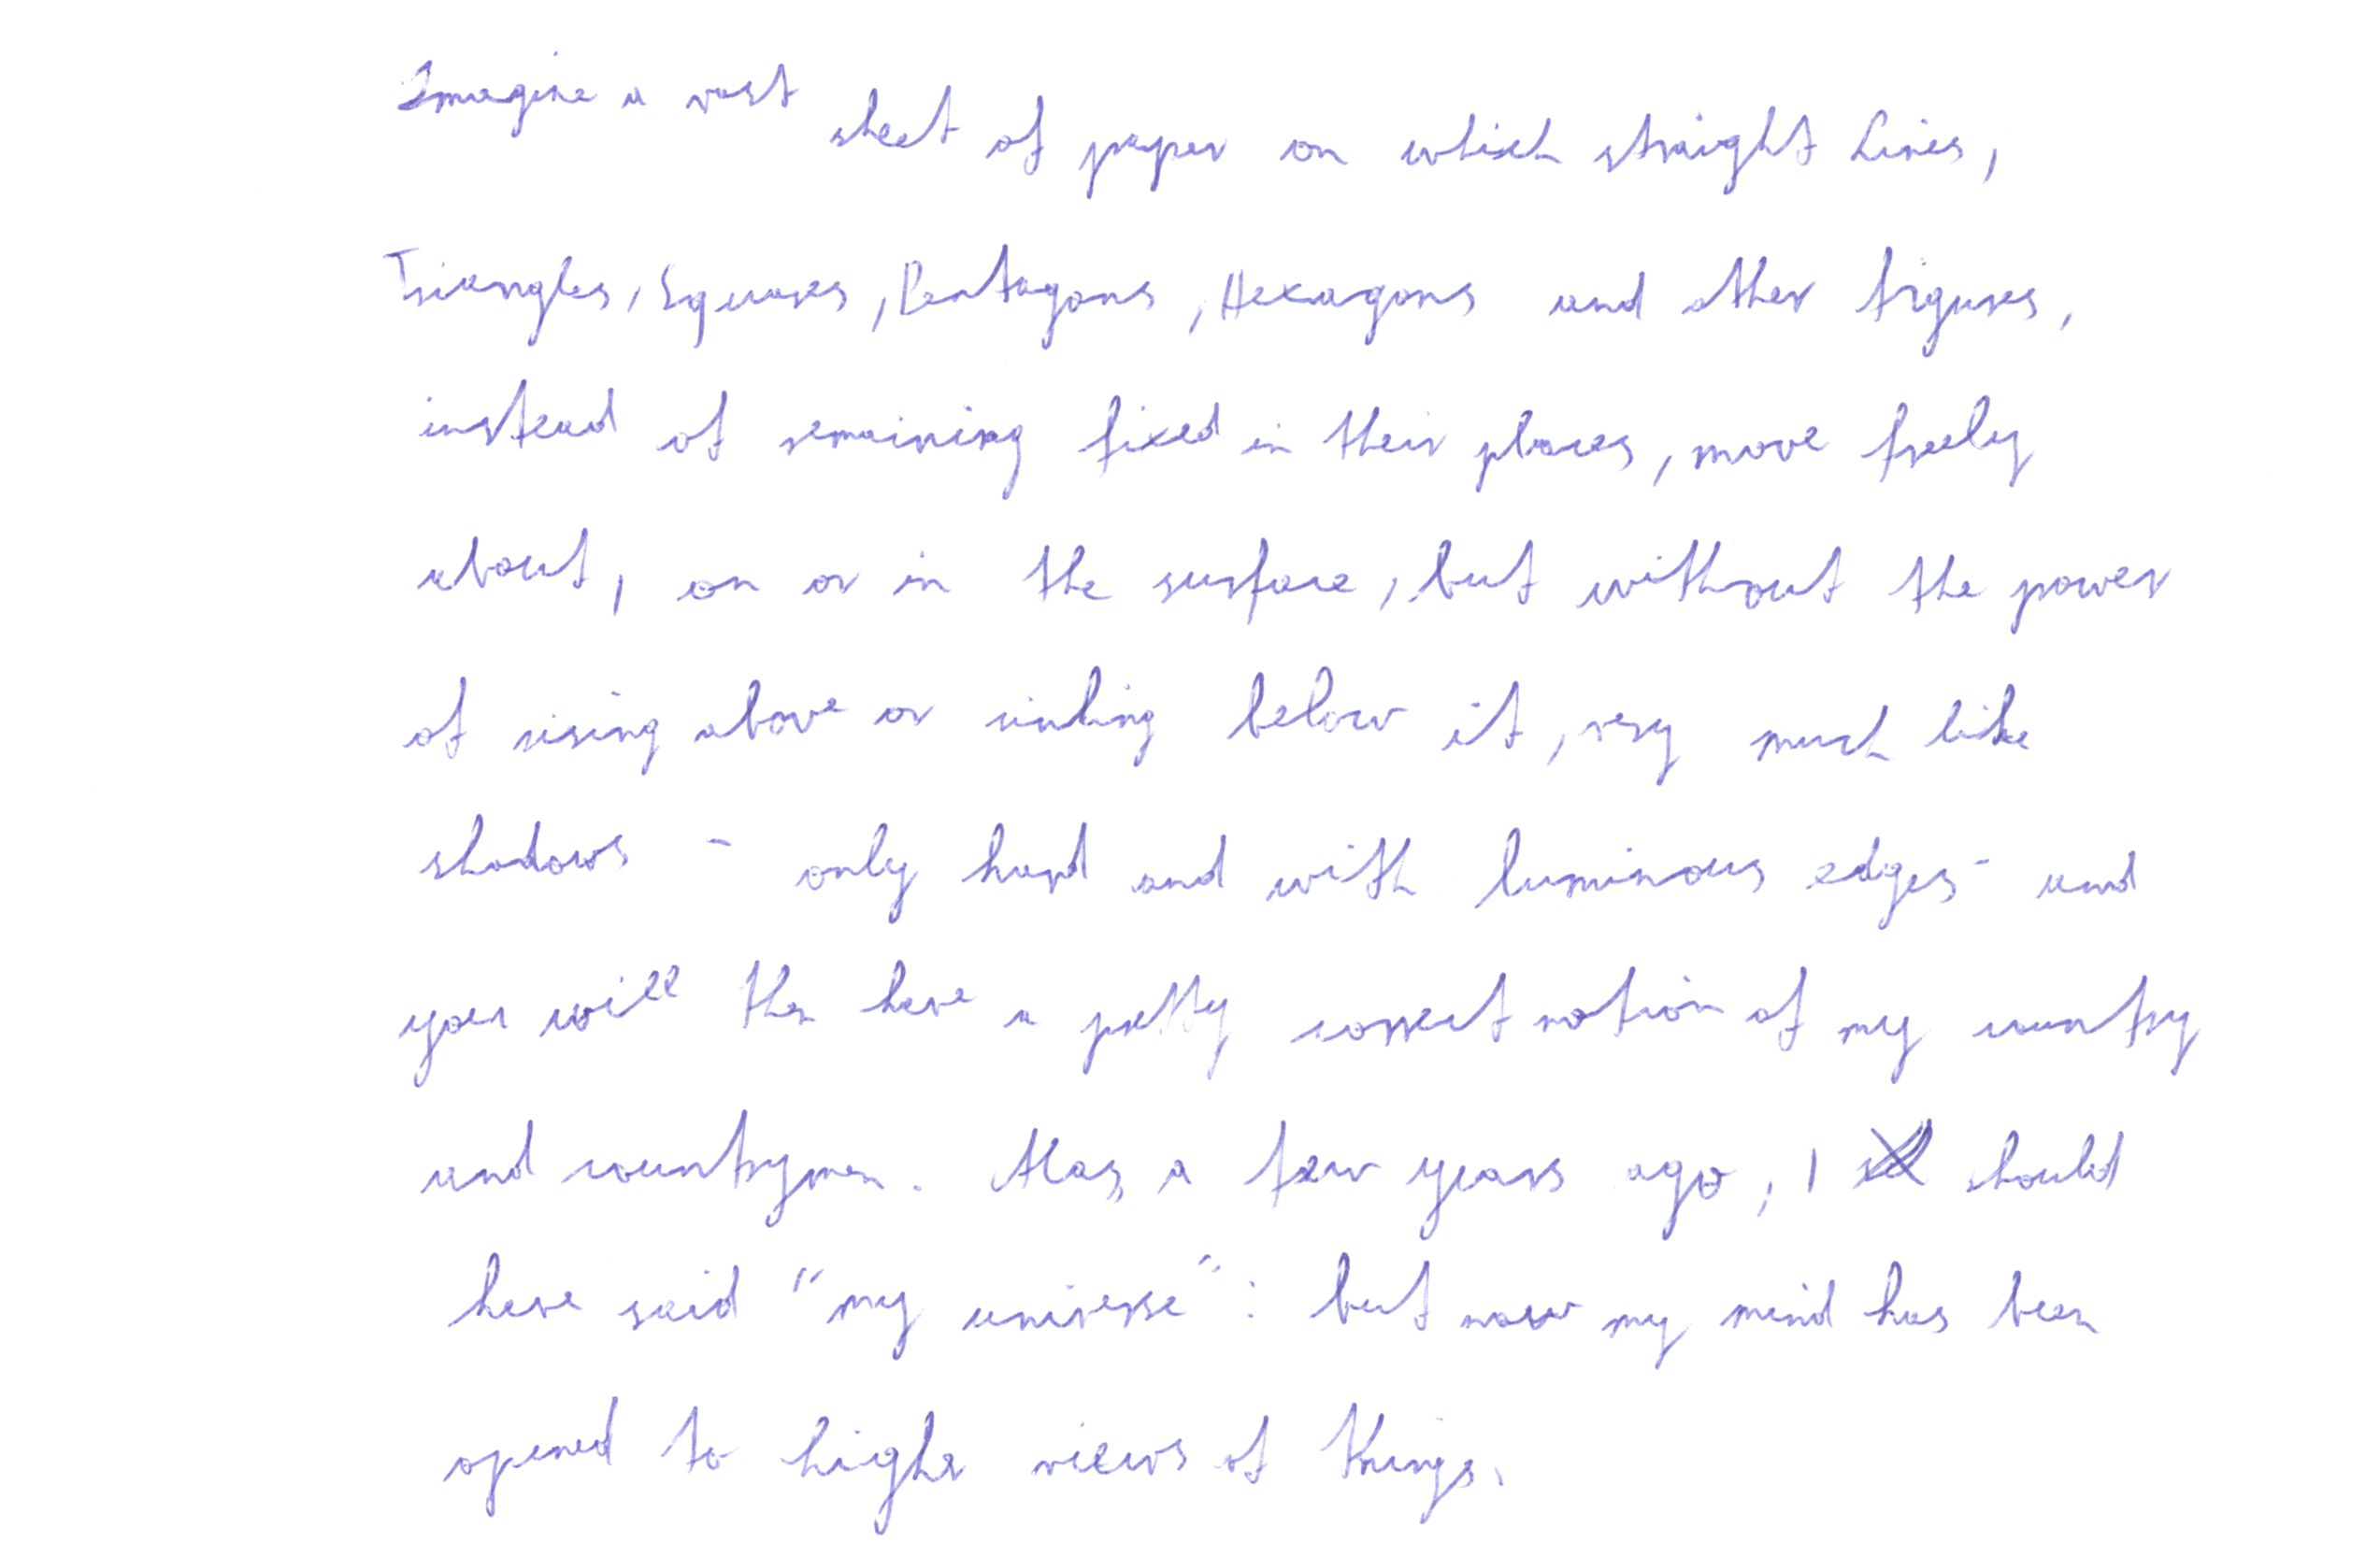 Imagine a vast sheet of paper on which straight Lines,
Triangles, Squares, Pentagons, Hexagons and other figures,
instead of remaining fixed in their places, move freely
about, on or in the surface, but without the power
of rising above or sinking below it, very much like
shadows - only hard and with luminous edges - and
you will then have a pretty correct notion of my country
and countrymen. Alas, a few years ago, I should
have said "my universe": but now my mind has been
opened to higher views of things.